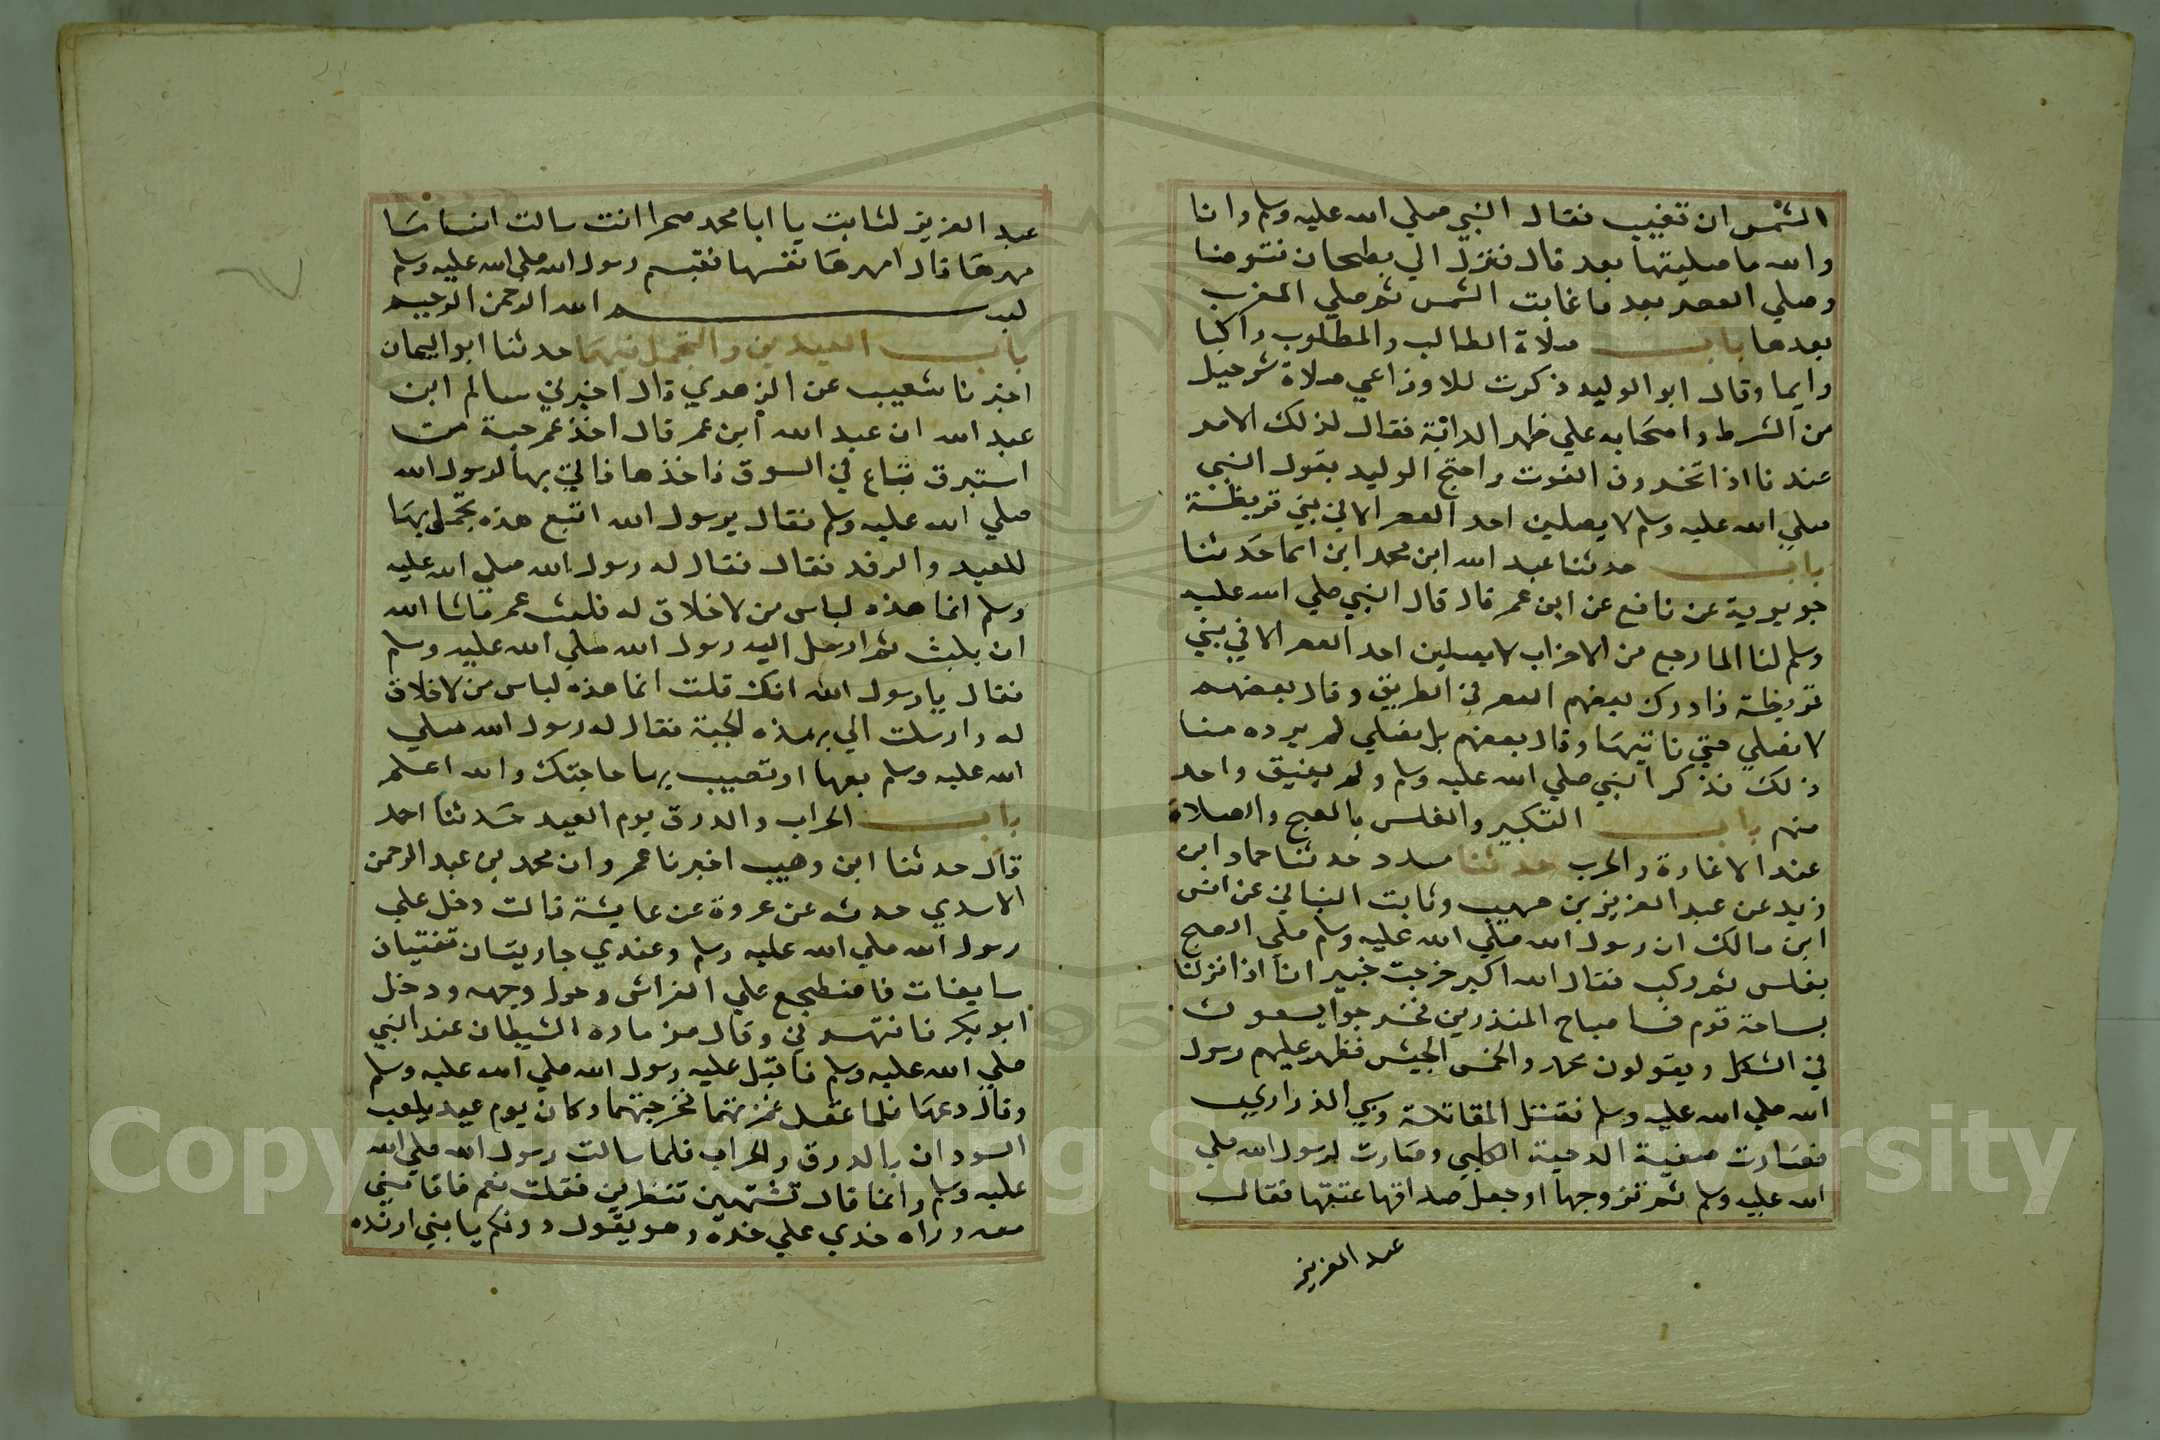 الشمس ان تغيب فقال النبي صلي الله عليه وسلم وانا
والله ما صليتها بعد قال فنزل الي بطحان فتوضا
وصلي العصر بعد ما غابت الشمس ثم صلي المغرب
بعدها باب صلاة الطالب والمطلوب راكبا
وايما وقال ابو الوليد ذكرت للاوزاعي صلاة شرحيل
من الشرط واصحابه علي ظهر الدابة فقال لذلك الامر
عندنا اذا تخدون الفوت واحتج الوليد بقول النبي
صلي الله عليه وسلم لا يصلين احد العصر الا في بني قريظة
باب حدثنا عبد الله ابن محمد ابن اسما حدثنا
جويرية عن نافع عن ابن عمر قال قال النبي صلي الله عليه
وسلم لنا الما رجع من الاحزاب لا يصلين احد العصر الا في بني
قريظة فادرك بعضهم العصر في الطريق وقال بعضهم
لا نصلي حتي ناتيها وقال بعضهم بل نصلي لم يرده منا
ذلك فذكر النبي صلي الله عليه وسلم ولم يعنيق واحد
منهم باب التكبير والغلس بالصبح والصلاة
عند الاغارة والحرب حدثنا مسدد حدثنا حماد ابن
زيد عن عبد العزيز بن صهيب وثابت البناني عن انس
ابن مالك ان رسول الله صلي الله عليه وسلم صلي الصبح
بغلس ثم ركب فقال الله اكبر خربت خيبر انا اذا نزلنا
بساحة قوم فسا صباح المنذرين فخرجوا يسعون
في السكل ويقولون محمد والخمس الجيش فظهر عليهم رسول
الله صلي الله عليه وسلم فقتل المقاتلة وسبي الذراري
فصارت صفية الدحية الكلبي وصارت لرسول الله صلي
الله عليه وسلم ثم تزوجها اوجعل صداقها عتقها فقال
عبد العزيز
عبد العزيز لثابت يا ابا محمد صحرا انت سالت انسا ما
مهرها قال امهرها نفسها فتبسم رسول الله صلي الله عليه وسلم
بسم الله الرحمن الرحيم
باب العيدين والتجمل فيهما حدثنا ابو اليمان
اخبرنا شعيب عن الزهدي قال اخبرني سالم ابن
عبد الله ان عبد الله ابن عمر قال اخذ عمر جبة من
استبرق تباع في السوق فاخذها فاتي بها لرسول الله
صلي الله عليه وسلم فقال يرسول الله اتبع هذه تجمل بها
للعيد والوفد فقال فقال له رسول الله صلي الله عليه
وسلم انما هذه لباس من لا خلاق له فلبث عمر ماشا الله
ان يلبث ثم ارسل اليه رسول الله صلي الله عليه وسلم
فقال يا رسول الله انك قلت انما هذه لباس من لا خلاق
له وارسلت الي بهذه الجبة فقال له رسول الله صلي
الله عليه وسلم بعها او تصيب بها حاجتك والله اعلم
باب الحراب والدرق يوم العيد حدثنا احد
قال حدثنا ابن وهيب اخبرنا عمر وان محمد بن عبد الرحمن
الاسدي حدثه عن عروة عن عايشة قالت دخل علي
رسول الله صلي الله عليه وسلم وعندي جاريتان تغنيان
سايغات فاضطجع علي الفراش وحول وجهه ودخل
ابو بكر فانتهرني وقال مزماره الشيطان عند النبي
صلي الله عليه وسلم فاقبل عليه رسول الله صلي الله عليه وسلم
وقال دعها فلما غفل غمزتهما فخرجتهما وكان يوم عيد يلعب
السودان بالدرق والحراب فلما سالت رسول الله صلي الله
عليه وسلم وانما قال تشتهين تنظرين فقلت نعم فاقامني
معه وراه خدي علي خده وهو يقول دونكم يا بني ارفده
Copyright © King Saud University